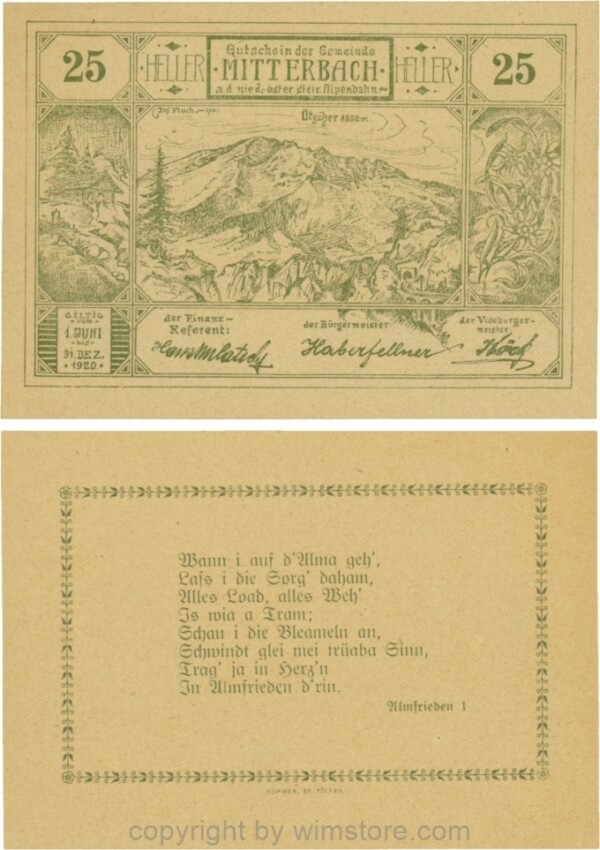 25
HELLER
Gutschein der Gemeinde
MITTERBACH
a.d. nied.-öster. steir. Alpenbahn
HELLER
25
Ötscher 1892 m.
GILTIG
VOM
1. JUNI
BIS
31. DEZ.
1920
der Finanz-
Referent:
der Bürgermeister
Haberfellner
der Vizeburger-
meister
Wann i auf d'Alma geh',
Lass i die Sorg' daham,
Alles Load, alles Weh'
Is wia a Tram;
Schau i die Bleameln an,
Schwindt glei mei trüaba Sinn,
Trag' ja in Herz'n
In Almfrieden d'rin.
Almfrieden 1
SOMMER, ST. PÖLTEN
copyright by wimstore.com